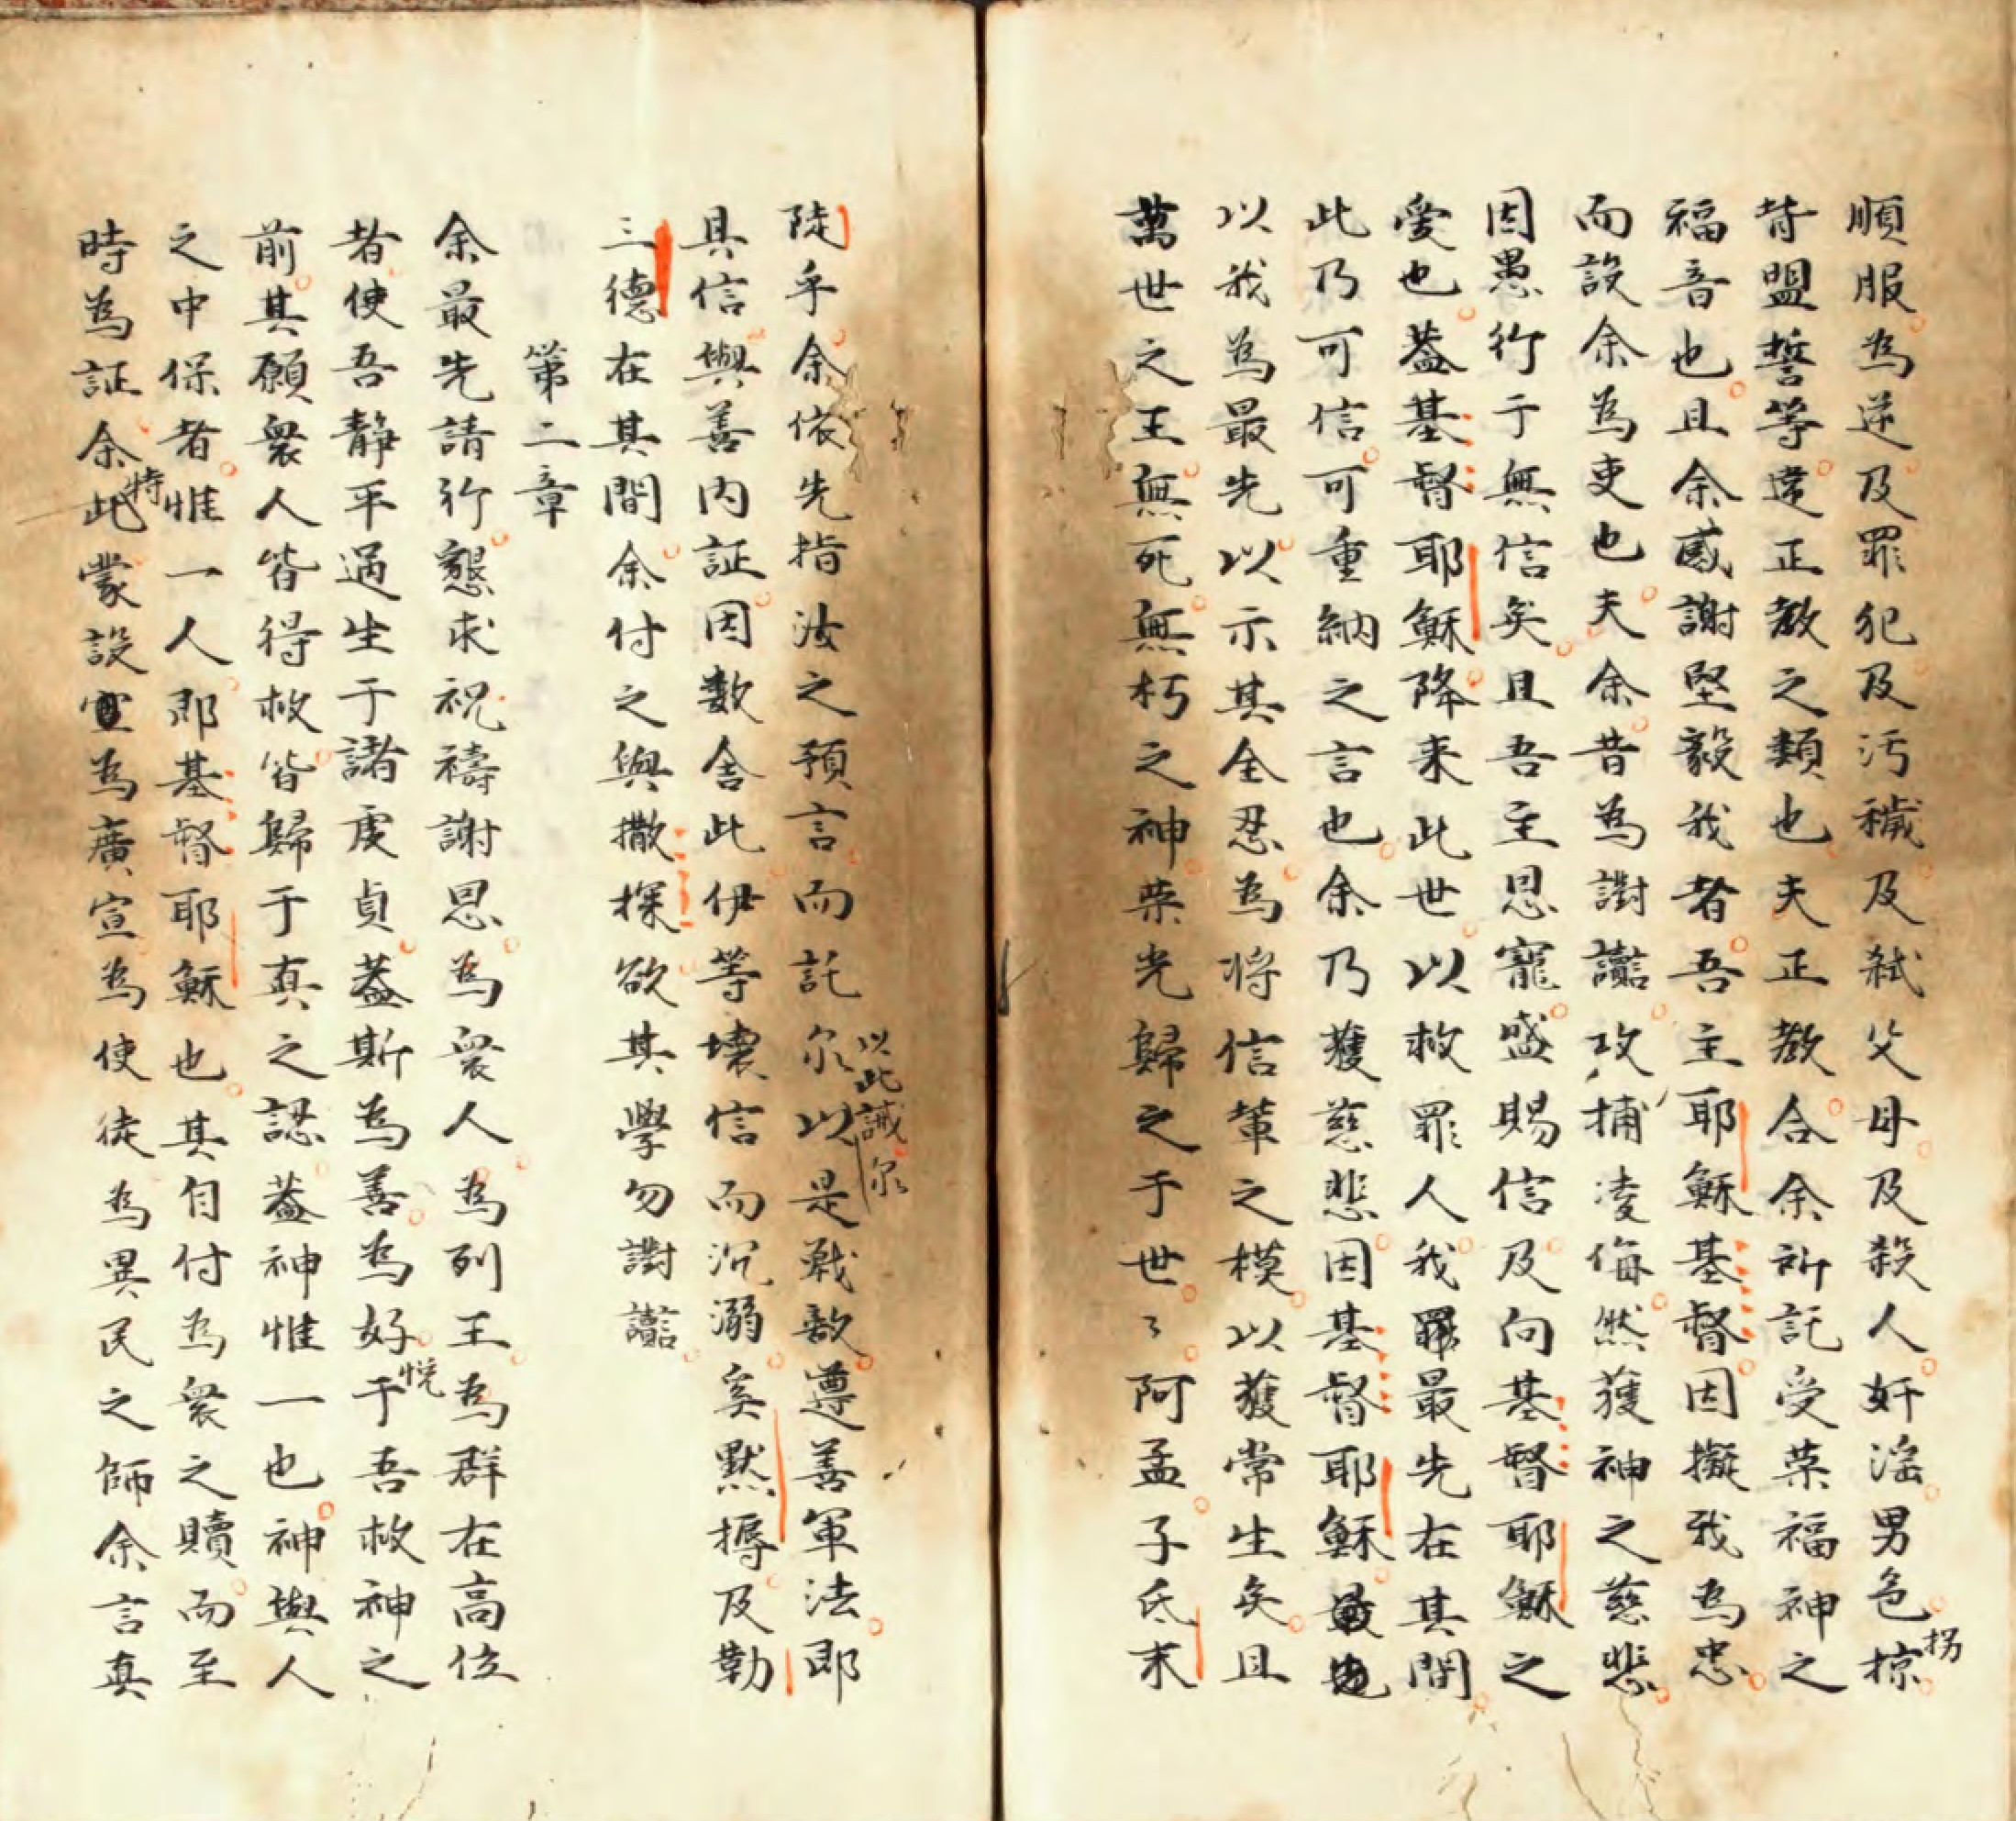 順服為逆及罪犯及汚穢及弒父母及殺人奸淫男色掠
拐
背盟誓等違正教之類也夫正教合余所託受荣福神之
福音也且余感謝堅毅我者吾主耶穌基督因擬我為忠
而設余為吏也夫余昔為譵讟攻捕凌侮然獲神之慈悲
因愚行于無信矣且吾主恩寵盛賜信及向基督耶穌之
愛也葢基督耶穌降来此世以救罪人我罪最先在其間
此乃可信可重納之言也余乃獲慈悲因基督耶穌
以我為最先以示其全忍為将信輩之模以獲常生矣且
萬世之王無死無朽之神荣光歸之于世々阿孟子氐末
陡乎余依先指汝之預言而託尔以是戰敵遵善軍法即
以此誡尔
具信與善内証因数舍此伊等壞信而沉溺矣默搙及勒
三德在其間余付之與撒探欲其學勿譵讟
第二章
余最先請行懇求祝禱謝恩為衆人為列王為群在高位
者使吾靜平過生于諸虔貞葢斯為善為好于吾救神之
悅
前其願衆人皆得救皆歸于真之認葢神惟一也神與人
之中保者惟一人即基督耶穌也其自付為衆之贖而至
時為証余此蒙設為廣宣為使徒為異民之師余言真
特